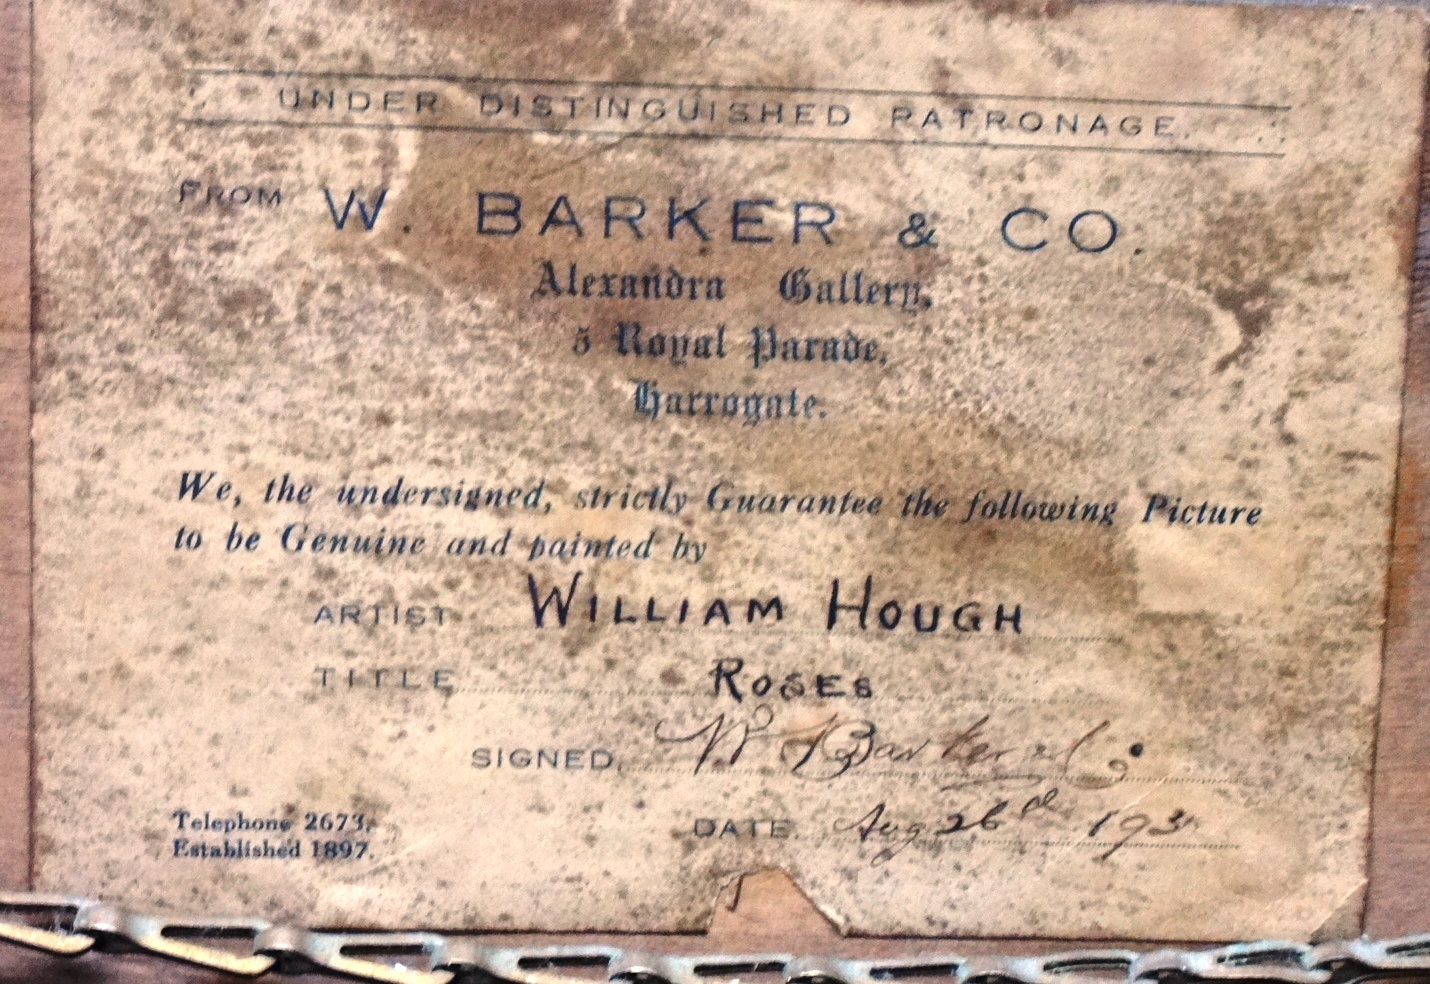 UNDER DISTINGUISHED PATRONAGE.
FROM W. BARKER & CO.
Alexandra Gallery,
5 Royal Parade,
Harrogate.
We, the undersigned, strictly Guarantee the following Picture
to be Genuine and painted by
ARTIST WILLIAM HOUGH
TITLE ROSES
SIGNED. W Barker
Telephone 2673.
Established 1897.
DATE. Aug 26